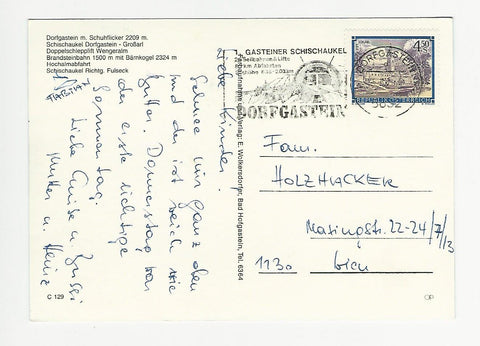 Dorfgastein m. Schuhflicker 2209 m.
Schischaukel Dorfgastein - Großarl
Doppelschlepplift Wengeralm
Brandsteinbahn 1500 m mit Bärnkogel 2324 m
Hochalmabfahrt
Schischaukel Richtg. Fulseck
Liebe Kinder!
Schnee nur ganz oben
und der ist weich wie
Butter. Donnerstag war
der erste richtige
Sonnentag.
Liebe Grüße u. Bussi
Mutter u. Heinz
C 129
E. Wolkersdorfer, Bad Hofgastein, Tel. 6364
GASTEINER SCHISCHAUKEL
DORFGASTEIN
DORFGASTEIN
4.50
REPUBLIK ÖSTERREICH
Fam.
HOLZHACKER
22-24/7/13
1130 Wien